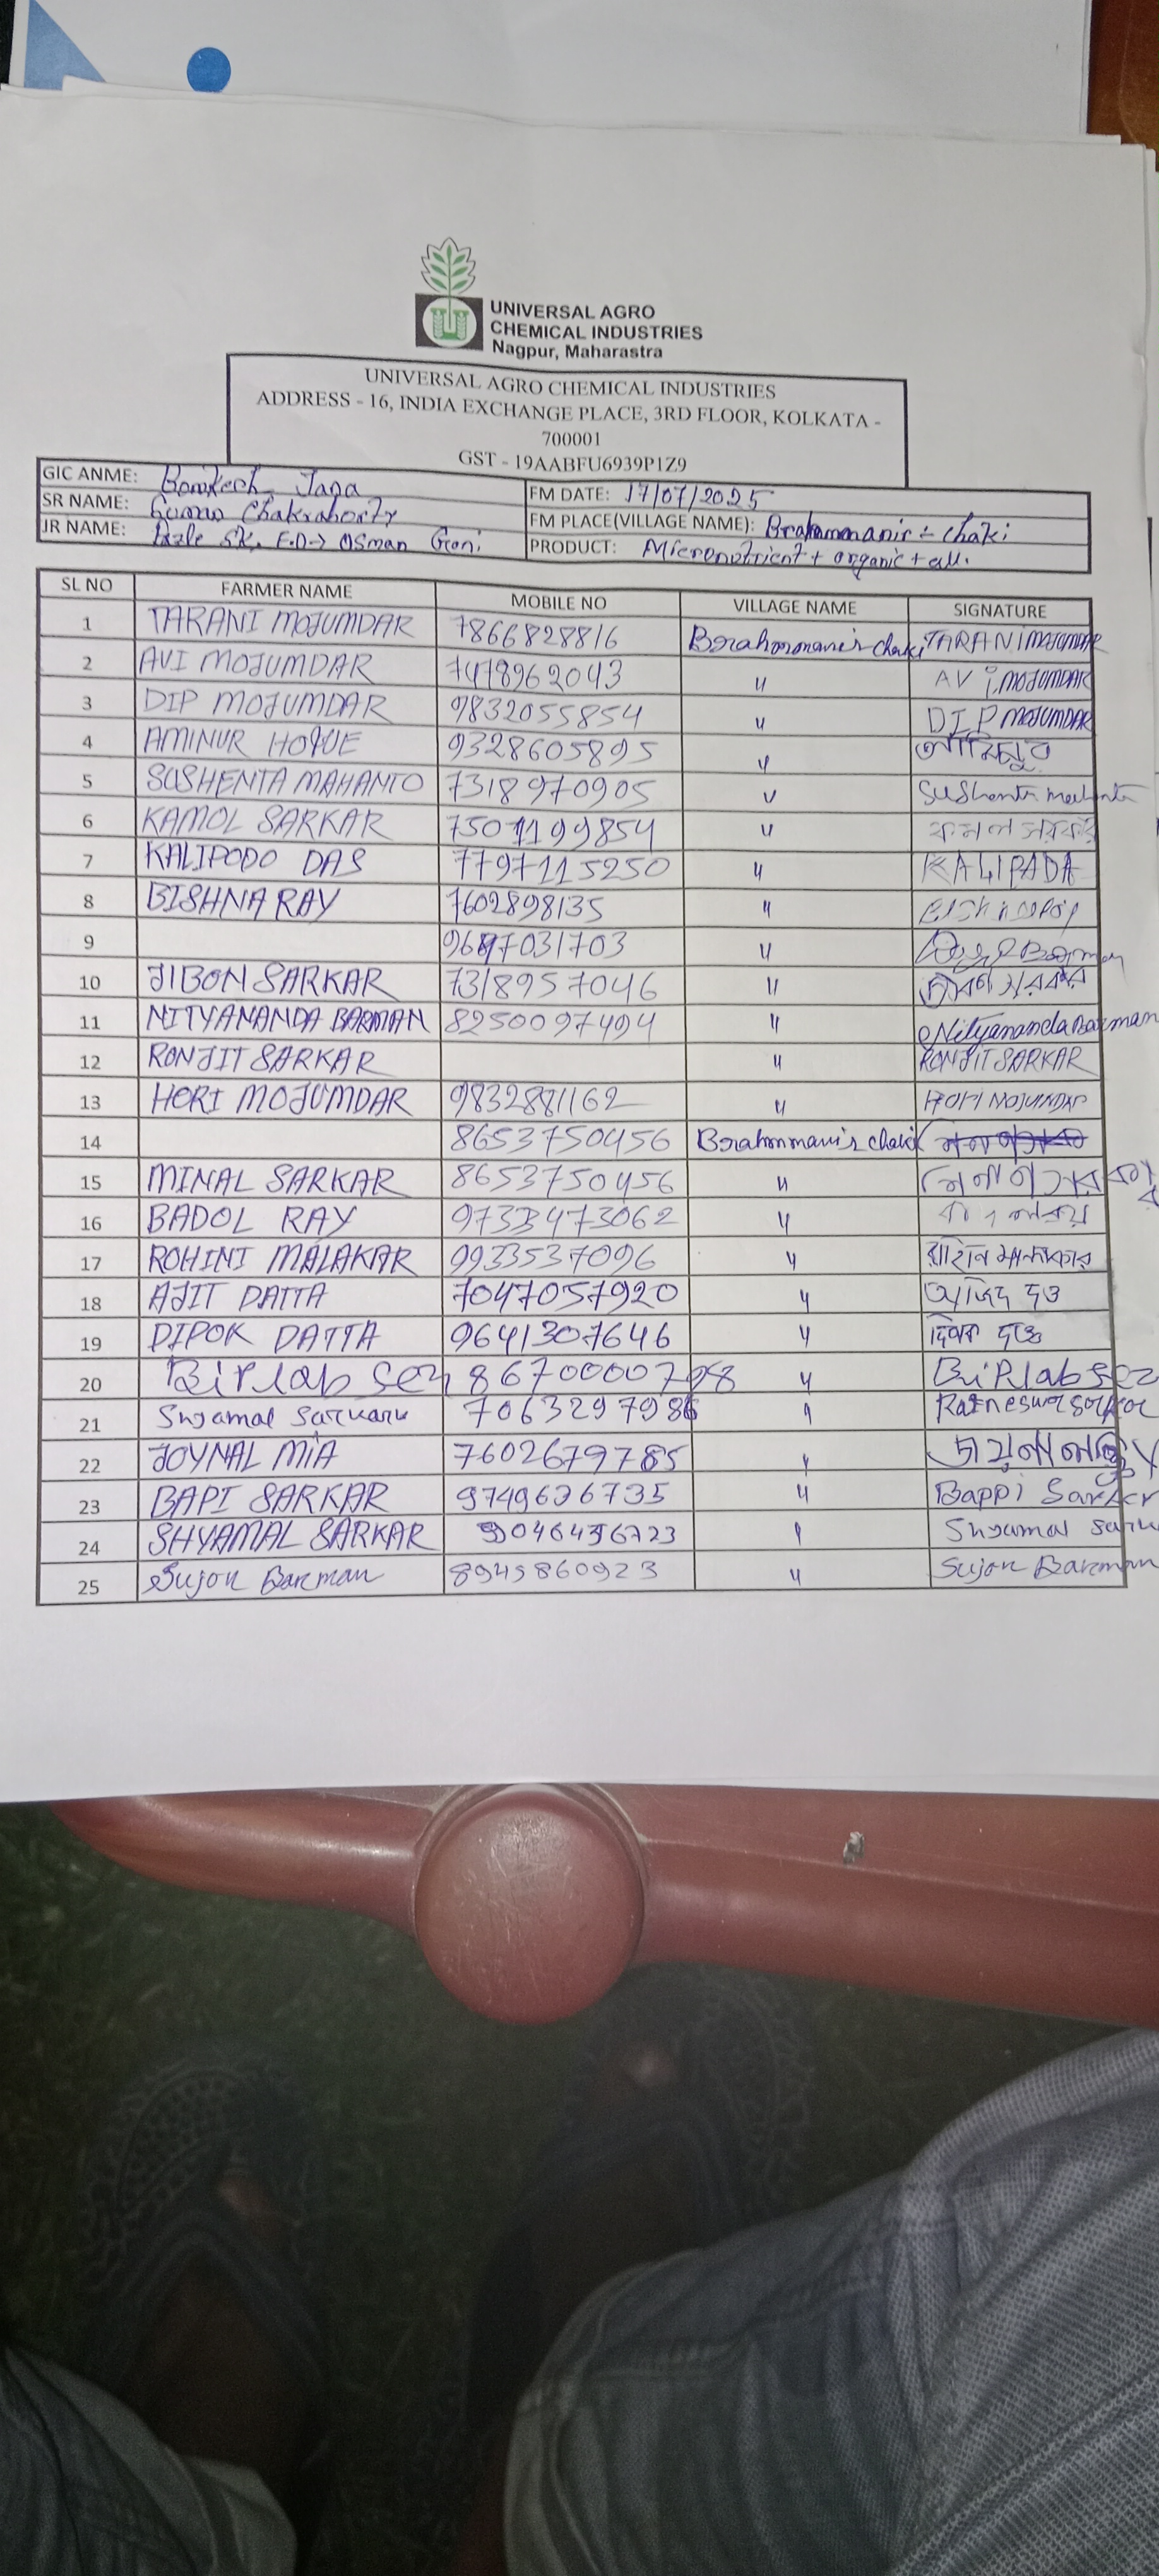 UNIVERSAL AGRO
CHEMICAL INDUSTRIES
Nagpur, Maharastra
UNIVERSAL AGRO CHEMICAL INDUSTRIES
ADDRESS - 16, INDIA EXCHANGE PLACE, 3RD FLOOR, KOLKATA -
700001
GST - 19AABFU6939P1Z9
GIC ANME: Jana FM DATE: 17/07/2025
SR NAME: Chakraborty FM PLACE(VILLAGE NAME): chaki
JR NAME: SK. F.D-> OSman Goni. PRODUCT: Micronutrient + organic + all.
SL NO FARMER NAME MOBILE NO VILLAGE NAME SIGNATURE
1 TARANI MOJUMDAR 7866828816 chaki TARANI MOJUMDAR
2 AVI MOJUMDAR 7478962043 " AVI MOJUMDAR
3 DIP MOJUMDAR 9832055854 " DIP MOJUMDAR
4 AMINUR HOQUE 9328605895 "
5 SUSHENTA MAHANTO 7318970905 " Sushenta
6 KAMOL SARKAR 7501199854 " কমল সরকার
7 KALIPODO DAS 7797115250 " KALIPADA
8 BISHNA RAY 7602898135 "
9 " Barman
10 JIBON SARKAR 7318957046 " জীবন সরকার
11 NITYANANDA BARMAN 8250097494 " Nityananda Barman
12 RONJIT SARKAR " RONJIT SARKAR
13 HORI MOJUMDAR 9832881162 " HORI MOJUMDAR
14 8653750456 chaki
15 MINAL SARKAR 8653750456 "
16 BADOL RAY 9733473062 "
17 ROHINI MALAKAR 9933537096 " মালাকার
18 AJIT DATTA 7047057920 " দত্ত
19 DIPOK DATTA 9641307646 " দত্ত
20 Biplab sen "
21 Shyamal Sarkar " Ratneswar sarkar
22 JOYNAL MIA 7602679785 "
23 BAPI SARKAR 9749626735 " Bappi Sarkar
24 SHYAMAL SARKAR " Shyamal
25 Sujon Barman 8945860923 " Sujon Barman